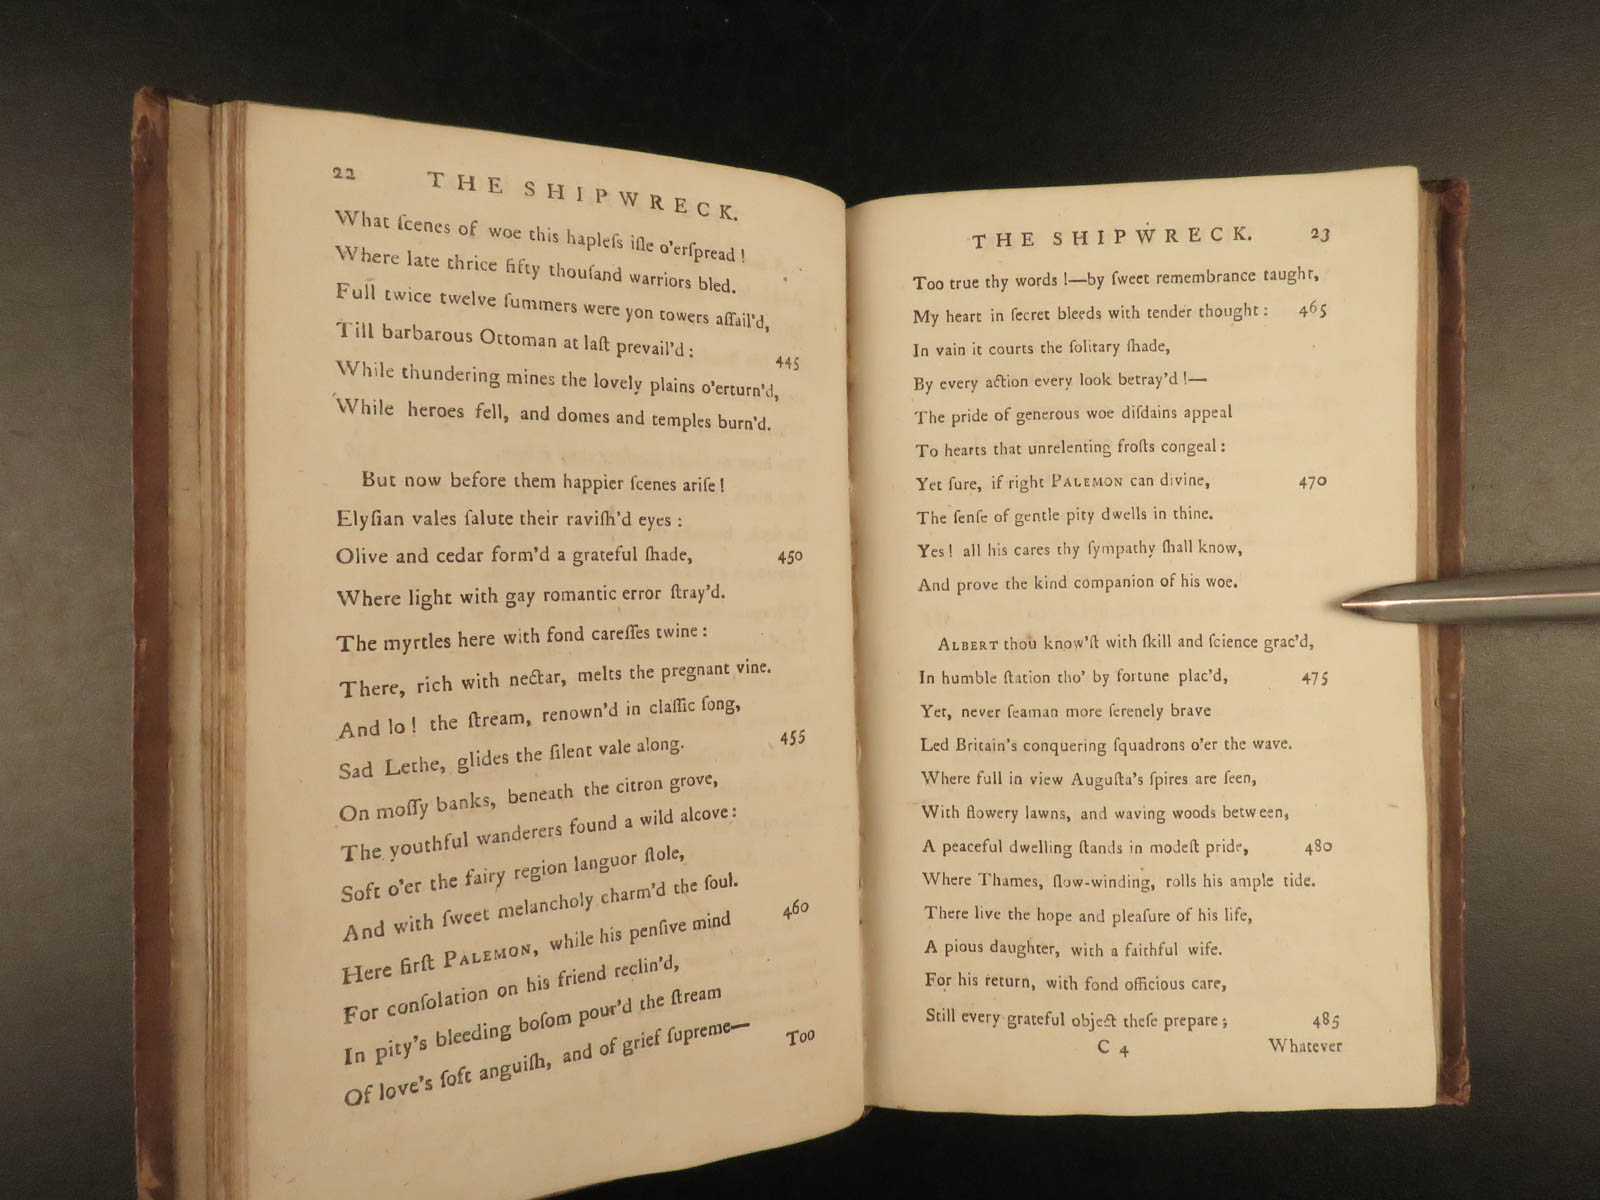 22 THE SHIPWRECK.
What ſcenes of woe this hapleſs iſle o'erſpread !
Where late thrice fifty thouſand warriors bled.
Full twice twelve ſummers were yon towers aſſail'd,
Till barbarous Ottoman at laſt prevail'd : 445
While thundering mines the lovely plains o'erturn'd,
While heroes fell, and domes and temples burn'd.
But now before them happier ſcenes ariſe !
Elyſian vales ſalute their raviſh'd eyes :
Olive and cedar form'd a grateful ſhade, 450
Where light with gay romantic error ſtray'd.
The myrtles here with fond careſſes twine :
There, rich with nectar, melts the pregnant vine.
And lo ! the ſtream, renown'd in claſſic ſong,
Sad Lethe, glides the ſilent vale along. 455
On moſſy banks, beneath the citron grove,
The youthful wanderers found a wild alcove :
Soft o'er the fairy region languor ſtole,
And with ſweet melancholy charm'd the ſoul.
Here firſt PALEMON, while his penſive mind 460
For conſolation on his friend reclin'd,
In pity's bleeding boſom pour'd the ſtream
Of love's ſoft anguiſh, and of grief ſupreme—
Too
THE SHIPWRECK. 23
Too true thy words !—by ſweet remembrance taught,
My heart in ſecret bleeds with tender thought : 465
In vain it courts the ſolitary ſhade,
By every action every look betray'd !—
The pride of generous woe diſdains appeal
To hearts that unrelenting froſts congeal :
Yet ſure, if right PALEMON can divine, 470
The ſenſe of gentle pity dwells in thine.
Yes ! all his cares thy ſympathy ſhall know,
And prove the kind companion of his woe.
ALBERT thou know'ſt with ſkill and ſcience grac'd,
In humble ſtation tho' by fortune plac'd, 475
Yet, never ſeaman more ſerenely brave
Led Britain's conquering ſquadrons o'er the wave.
Where full in view Auguſta's ſpires are ſeen,
With flowery lawns, and waving woods between,
A peaceful dwelling ſtands in modeſt pride, 480
Where Thames, ſlow-winding, rolls his ample tide.
There live the hope and pleaſure of his life,
A pious daughter, with a faithful wife.
For his return, with fond officious care,
Still every grateful object theſe prepare ; 485
C 4 Whatever